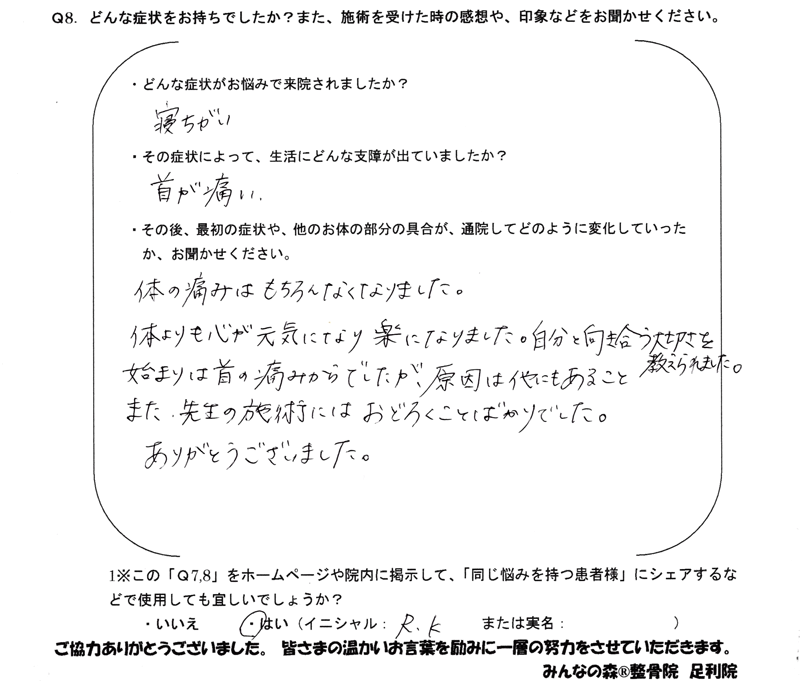 Q8. どんな症状をお持ちでしたか？また、施術を受けた時の感想や、印象などをお聞かせください。
・どんな症状がお悩みで来院されましたか？
寝ちがい
・その症状によって、生活にどんな支障が出ていましたか？
首が痛い.
・その後、最初の症状や、他のお体の部分の具合が、通院してどのように変化していった
か、お聞かせください。
体の痛みはもちろんなくなりました。
体よりも心が元気になり楽になりました。自分と向き合う大切さを
教えられました。
始まりは首の痛みからでしたが、原因は他にもあること
また.先生の施術にはおどろくことばかりでした。
ありがとうございました。
1※この「Ｑ7,8」をホームページや院内に掲示して、「同じ悩みを持つ患者様」にシェアするな
どで使用しても宜しいでしょうか？
・いいえ ・はい（イニシャル： R.K または実名： ）
ご協力ありがとうございました。 皆さまの温かいお言葉を励みに一層の努力をさせていただきます。
みんなの森®整骨院 足利院